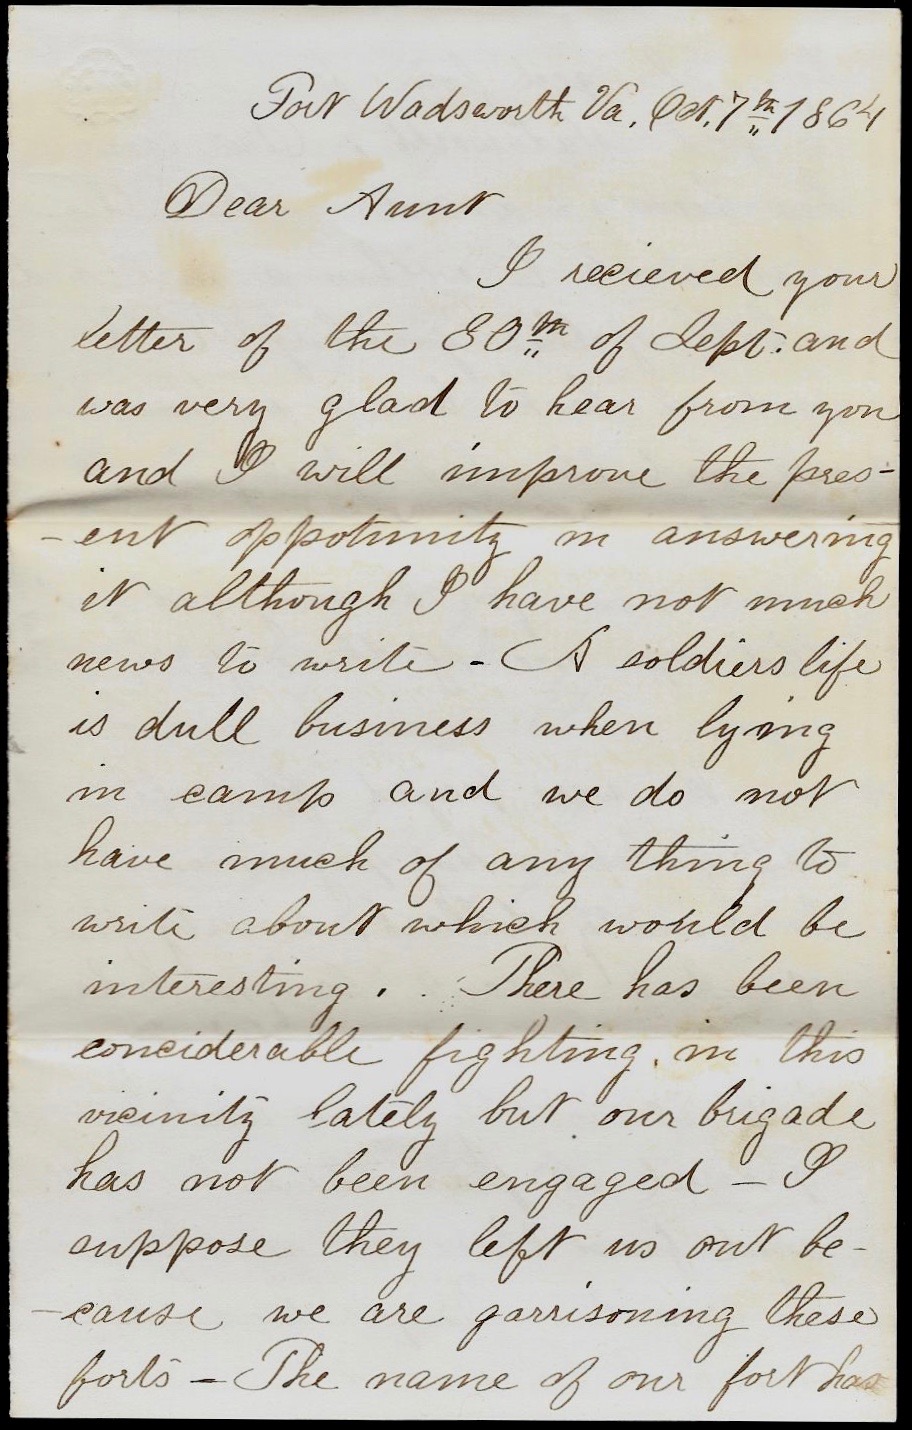 Fort Wadsworth Va. Oct. 7th 1864
Dear Aunt
I recieved your
letter of the 30th of Sept. and
was very glad to hear from you
and I will improve the pres-
-ent oppotunity in answering
it although I have not much
news to write - A soldiers life
is dull business when lying
in camp and we do not
have much of any thing to
write about which would be
interesting. There has been
conciderable fighting in this
vicinity lately but our brigade
has not been engaged - I
suppose they left us out be-
-cause we are garrisoning these
forts - The name of our fort has